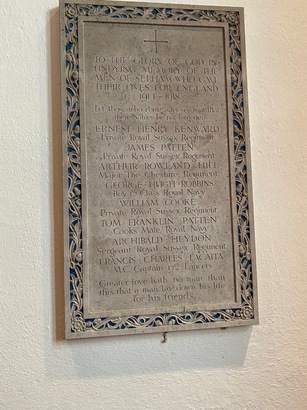 TO THE GLORY OF GOD IN
UNDYING MEMORY OF THE
MEN OF SELHAM WHO GAVE
THEIR LIVES FOR ENGLAND
1914 - 1918
their Names be not forgotten
ERNEST HENRY KENWARD
Private Royal Sussex Regiment
JAMES PATTEN
Private Royal Sussex Regiment
ARTHUR ROWLAND HILL
Major The Cheshire Regiment
GEORGE HUGH ROBBINS
Boy 1st Class Royal Navy
WILLIAM COOKE
Private Royal Sussex Regiment
TOM FRANKLIN PATTEN
Cooks Mate Royal Navy
ARCHIBALD HEYDON
Sergeant Royal Sussex Regiment
FRANCIS CHARLES LACAITA
M.C. Captain 17th Lancers
Greater love hath no man than
this that a man lay down his life
for his friends